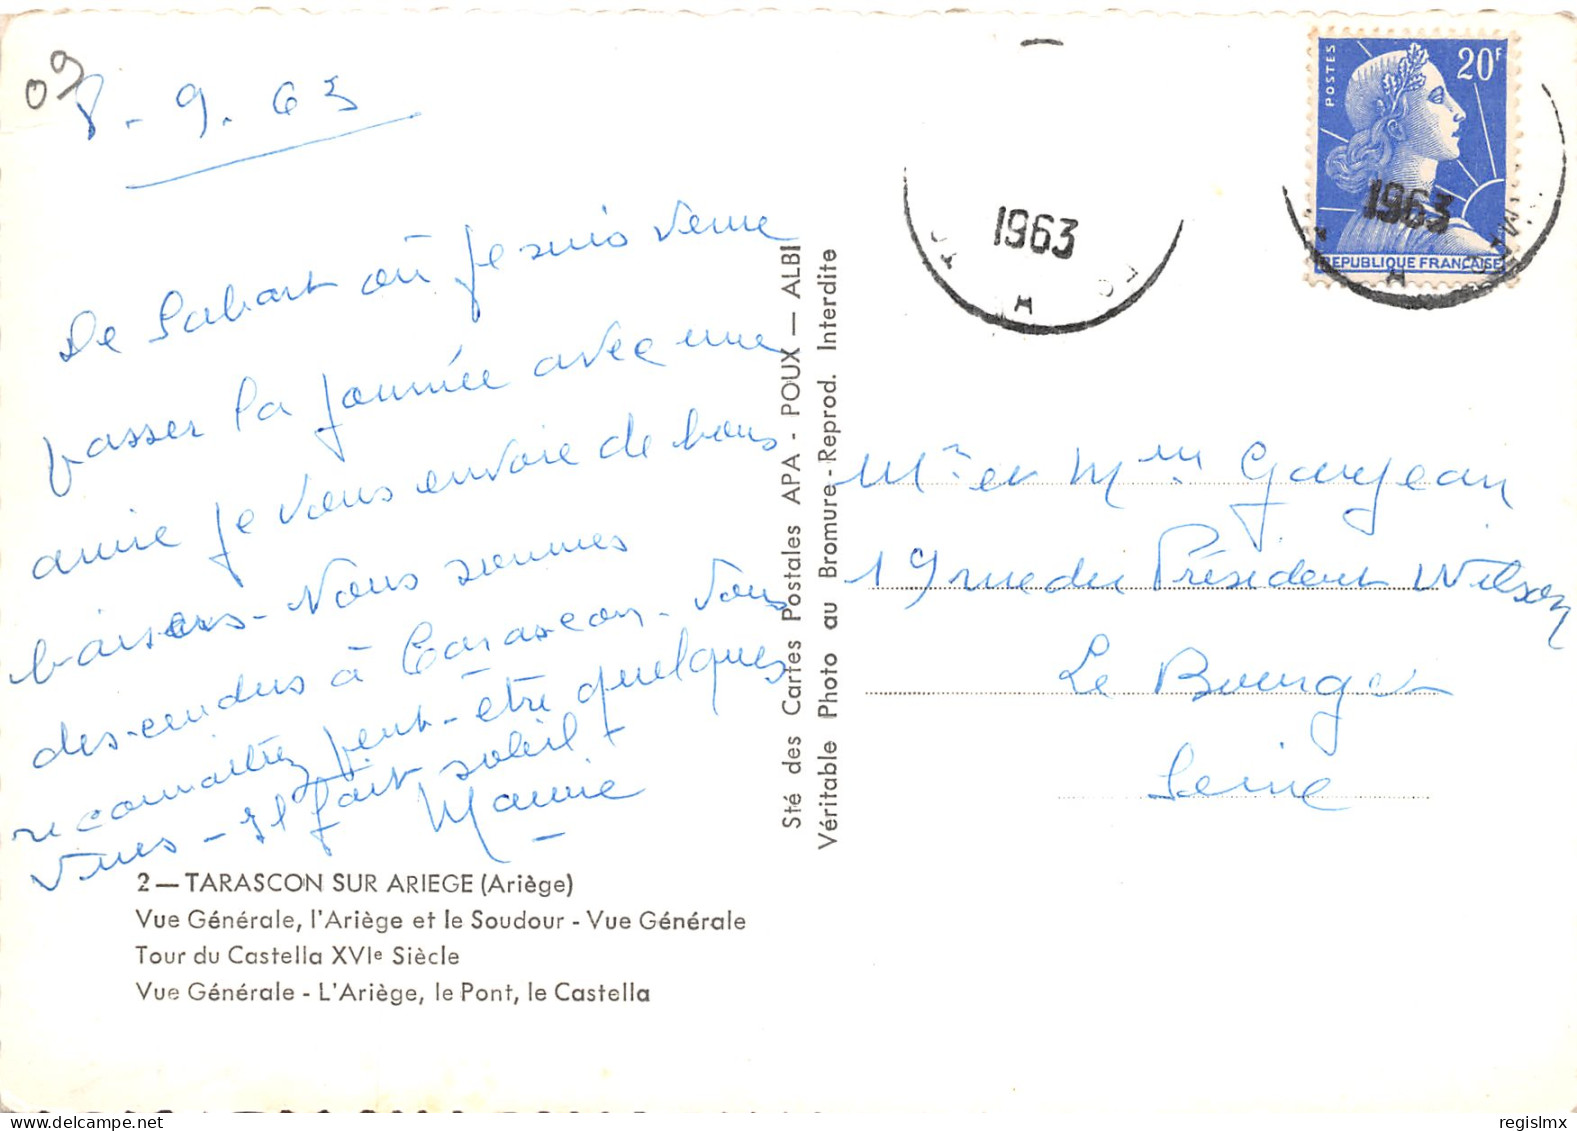 09
8-9.63
De Sabart où je suis venue
passer la journée avec une
amie je vous envoie de bons
baisers - Nous sommes
descendus à Tarascon - Vous
reconnaîtrez peut-être quelques
vues - Il fait soleil -
Mamie
2 — TARASCON SUR ARIEGE (Ariège)
Vue Générale, l'Ariège et le Soudour - Vue Générale
Tour du Castella XVIe Siècle
Vue Générale - L'Ariège, le Pont, le Castella
Sté des Cartes Postales APA - POUX — ALBI
Véritable Photo au Bromure - Reprod. Interdite
1963
POSTES
20F
1963
REPUBLIQUE FRANÇAISE
Mr et Mme Gaujean
19 rue du Président Wilson
Le Bourget
Seine
regislmx